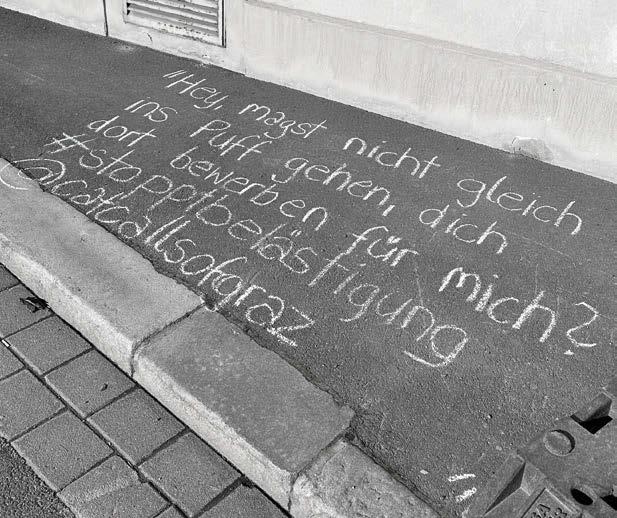 "Hey, magst nicht gleich
ins Puff gehen, dich
dort bewerben für mich?
#stopptbelästigung
@catcallsofgraz